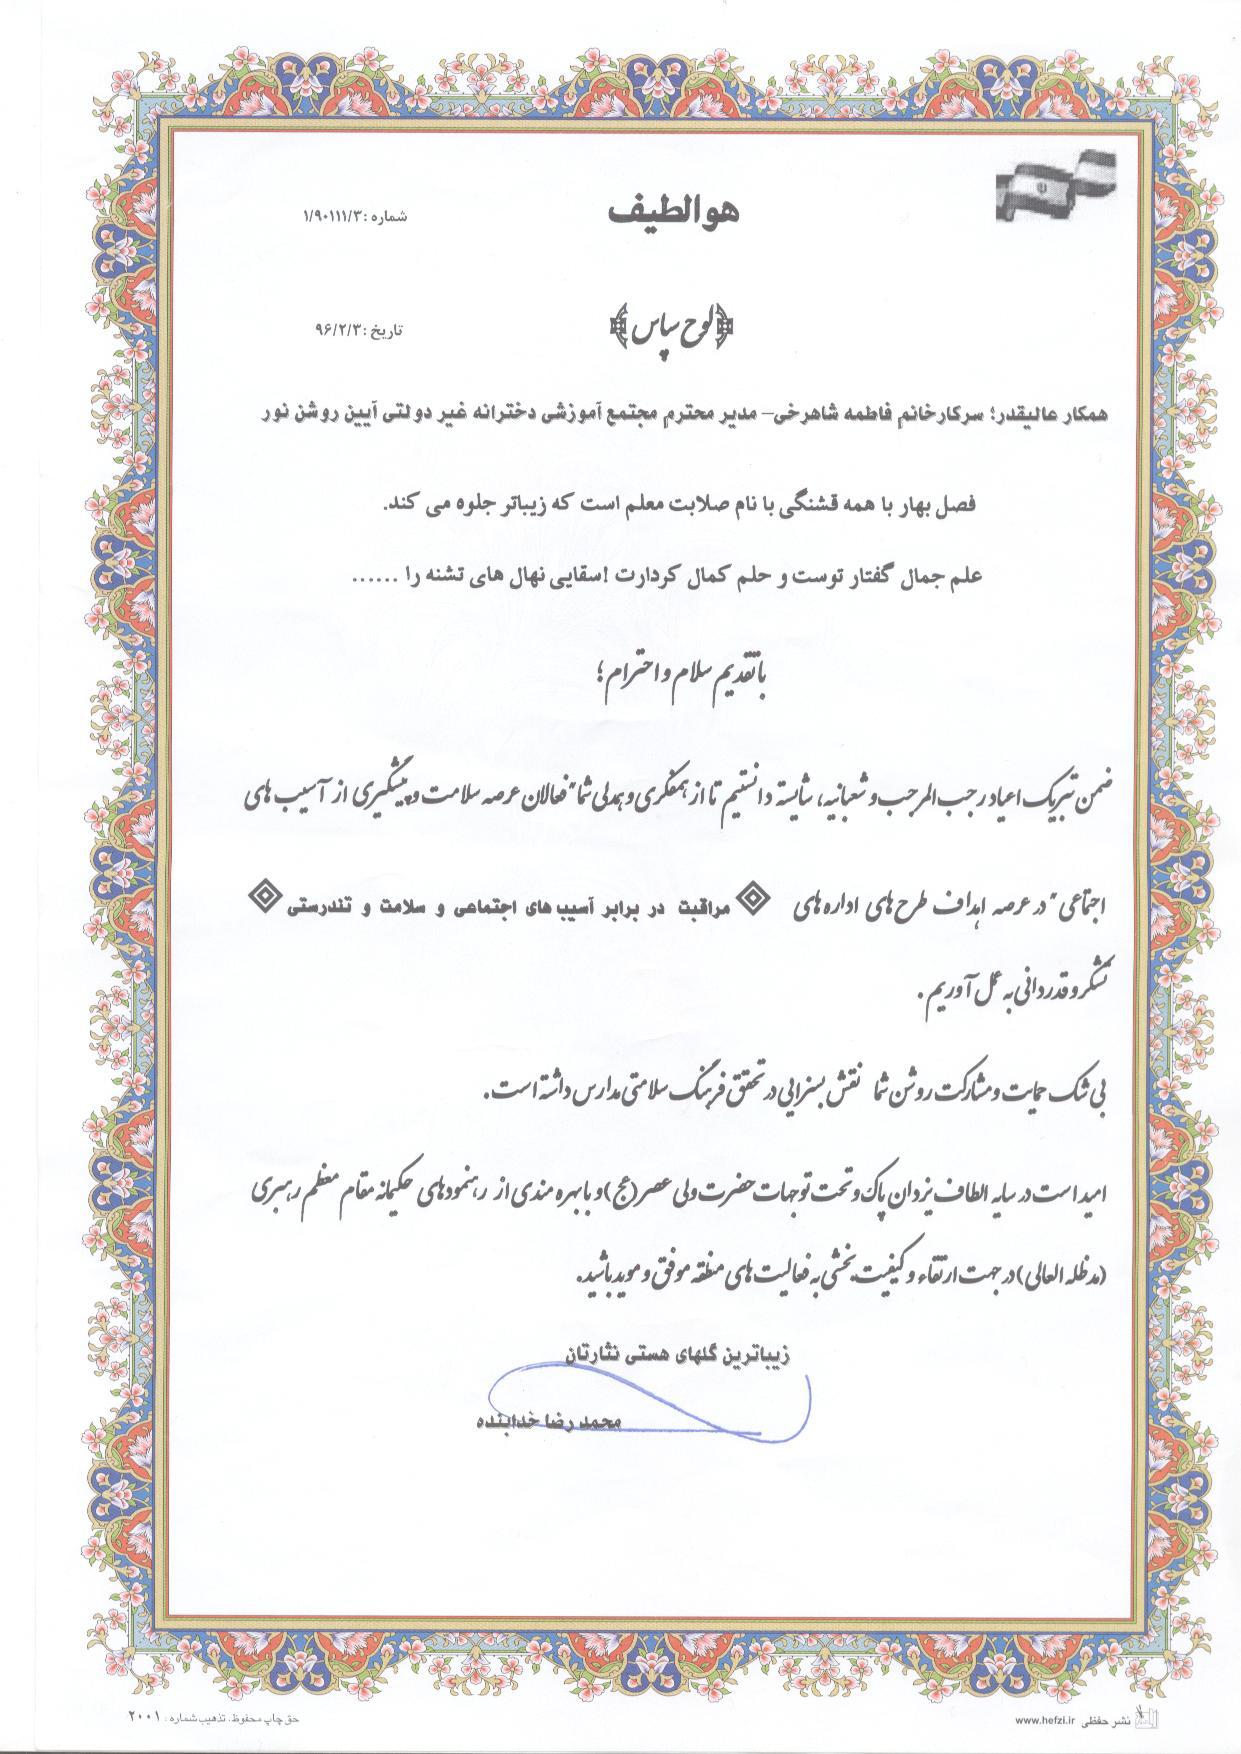 هوالطیف
شماره :۱/۹۰۱۱۱/۳
﴿لوح سپاس﴾
تاریخ :۹۶/۲/۳
همکار عالیقدر؛ سرکارخانم فاطمه شاهرخی– مدیر محترم مجتمع آموزشی دخترانه غیر دولتی آیین روشن نور
فصل بهار با همه قشنگی با نام صلابت معلم است که زیباتر جلوه می کند.
علم جمال گفتار توست و حلم کمال کردارت !سقایی نهال های تشنه را ......
با تقدیم سلام و احترام ؛
ضمن تبریک اعیاد رجب المرجب و شعبانیه، شایسته دانستیم تا از همفکری و همدلی شما"فعالان عرصه سلامت و پیشگیری از آسیب های
اجتماعی" در عرصه اهداف طرح های اداره های مراقبت در برابر آسیب های اجتماعی و سلامت و تندرستی
تشکر و قدردانی به عمل آوریم .
بی شک حمایت و مشارکت روشن شما نقش بسزایی در تحقق فرهنگ سلامتی مدارس داشته است.
امید است در سایه الطاف یزدان پاک و تحت توجهات حضرت ولی عصر(عج)و با بهره مندی از رهنمودهای حکیمانه مقام معظم رهبری
(مدظله العالی)در جهت ارتقاء و کیفیت بخشی به فعالیت های منطقه موفق و موید باشید.
زیباترین گلهای هستی نثارتان
محمد رضا خدابنده
نشر حفظی www.hefzi.ir
حق چاپ محفوظ. تذهیب شماره : ۲۰۰۱